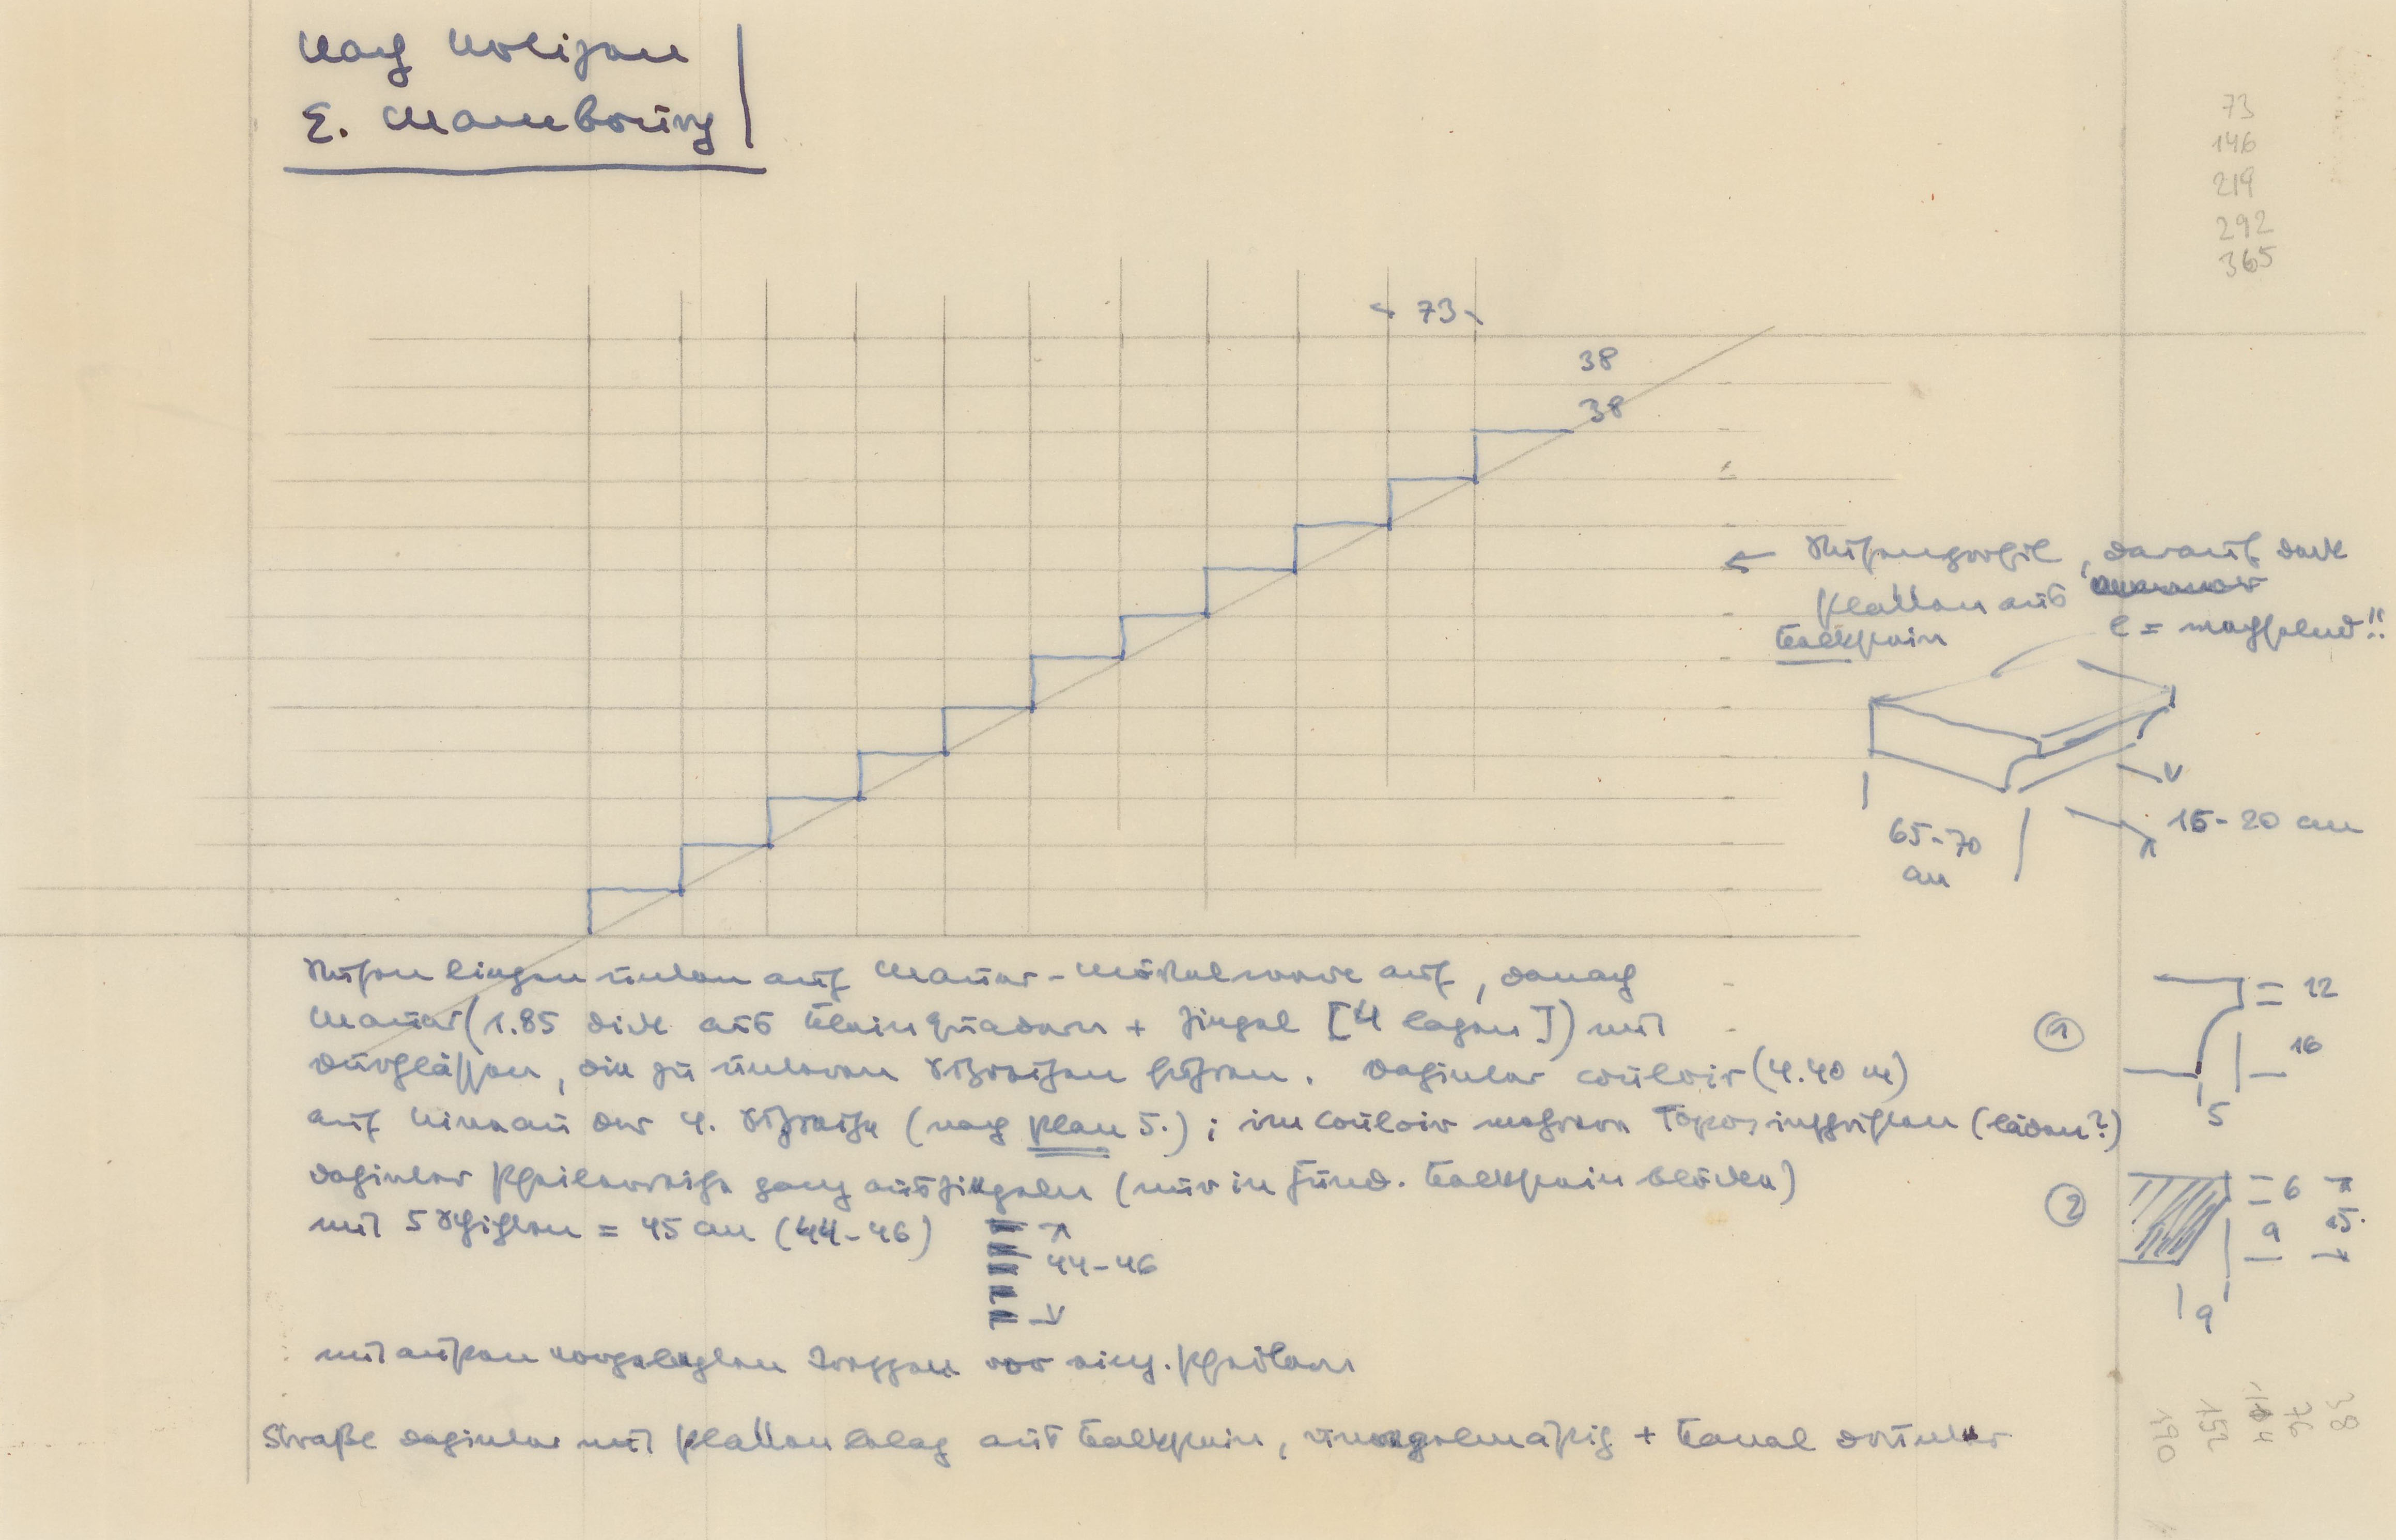 Nach Notizen
E. Mamboury
73
146
219
292
365
73
38
38
← Stufenprofil, darauf dort
Platten aus
Kalkstein
l = wechselnd!!
65-70
cm
15-20 cm
Stufen liegen unten auf Mauer-Mörtel auf, danach
Mauer (1.85 dick aus Kleinquadern + Ziegel [4 Lagen]) mit
Durchlässen, die zu unteren Sitzreihen führen. Dahinter couloir (4.40 m)
auf Niveau der 4. Sitzreihe (nach Plan 5.); im Couloir mehrere Toposinschriften (Läden?)
Dahinter Pfeilerreihe ganz aus Ziegeln (nur in Fund. Kalkstein blöcke)
mit 5 Schichten = 45 cm (44-46)
44-46
mit außen vorgelegten Treppen vor einz. Pfeilern
Straße dahinter mit Plattenbelag aus Kalkstein, unregelmäßig + Kanal darunter
① 12
16
5
② 6
9
15.
9
190
152
114
76
38